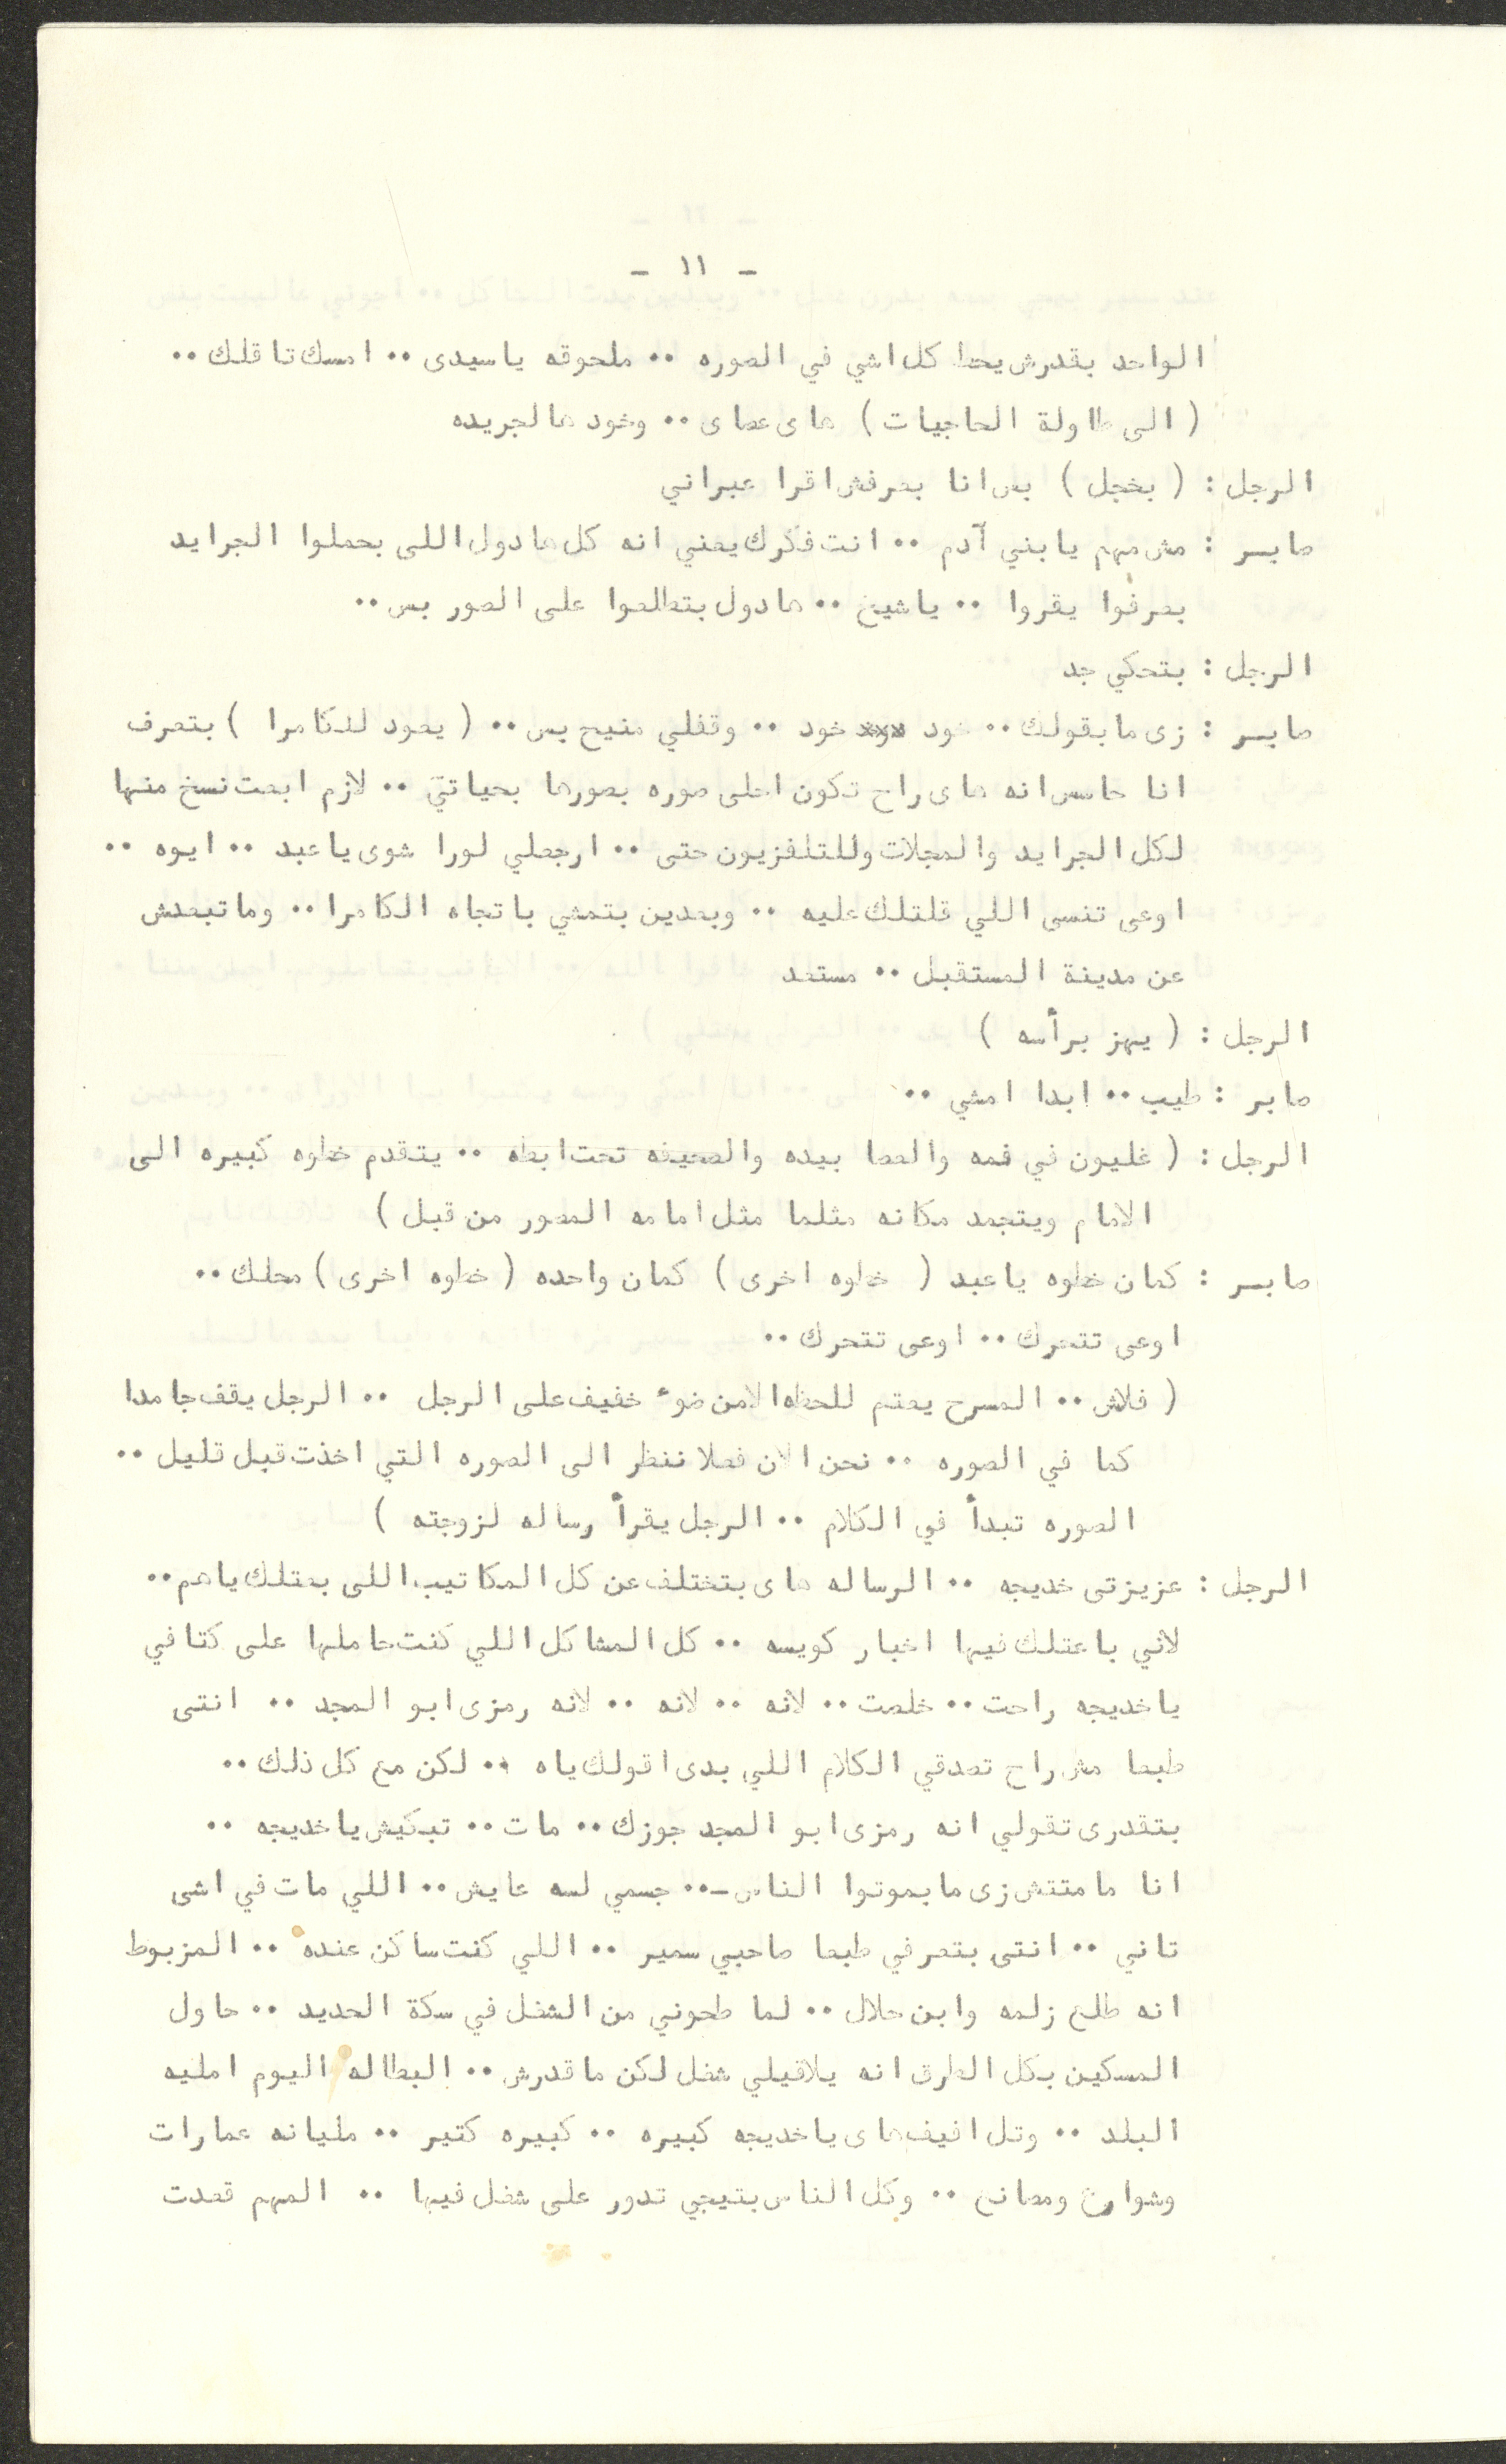 - ١١ -
الواحد بقدرش يحط كل اشي في الصوره .. ملحوقه ياسيدى .. امسك تا قلك ..
( الى طاولة الحاجيات ) هاى عصاى .. وخود هالجريده
الرجل : ( بخجل ) بس انا بعرفش اقرا عبراني
صابر : مش مهم يا بني آدم .. انت فكرك يعني انه كل هادول اللى بحملوا الجرايد
بعرفوا يقروا .. ياشيخ .. هادول بتطلعوا على الصور بس ..
الرجل : بتحكي جد
صابر : زى مابقولك .. خود xxx خود .. وقفلي منيح بس .. ( يعود للكامرا ) بتعرف
انا حاسس انه هاى راح تكون احلى صوره بصورها بحياتي .. لازم ابعت نسخ منها
لكل الجرايد والمجلات وللتلفزيون حتى .. ارجعلي لورا شوى ياعبد .. ايوه ..
اوعى تنسى اللي قلتلك عليه .. وبعدين بتمشي باتجاه الكامرا .. وماتبعدش
عن مدينة المستقبل .. مستعد
الرجل : ( يهز برأسه )
صابر : طيب .. ابدا امشي ..
الرجل : ( غليون في فمه والعصا بيده والصحيفه تحت ابطه .. يتقدم خطوه كبيره الى
الامام ويتجمد مكانه مثلما مثل امامه المصور من قبل )
صابر : كمان خطوه ياعبد ( خطوه اخرى ) كمان واحده ( خطوه اخرى ) محلك ..
اوعى تتحرك .. اوعى تتحرك ..
( فلاش .. المسرح يعتم للحظه الامن ضوء خفيف على الرجل .. الرجل يقف جامدا
كما في الصوره .. نحن الان فعلا ننظر الى الصوره التي اخذت قبل قليل ..
الصوره تبدأ في الكلام .. الرجل يقرأ رساله لزوجته )
الرجل : عزيزتى خديجه .. الرساله هاى بتختلف عن كل المكاتيب اللى بعتلك ياهم ..
لاني باعتلك فيها اخبار كويسه .. كل المشاكل اللي كنت حاملها على كتافي
ياخديجه راحت .. خلصت .. لانه .. لانه .. لانه رمزى ابو المجد .. انتى
طبعا مش راح تصدقي الكلام اللي بدى اقولك ياه .. لكن مع كل ذلك ..
بتقدرى تقولي انه رمزى ابو المجد جوزك .. مات .. تبكيش ياخديجه ..
انا مامتتش زى مابموتوا الناس -.. جسمي لسه عايش .. اللي مات في اشى
تاني .. انتى بتعرفي طبعا صاحبي سمير .. اللي كنت ساكن عنده .. المزبوط
انه طلع زلمه وابن حلال .. لما طحوني من الشغل في سكة الحديد .. حاول
المسكين بكل الطرق انه يلاقيلي شغل لكن ماقدرش .. البطاله اليوم امليه
البلد .. وتل افيف هاى ياخديجه كبيره .. كبيره كتير .. مليانه عمارات
وشوارع ومصانع .. وكل الناس بتيجي تدور على شغل فيها .. المهم قعدت